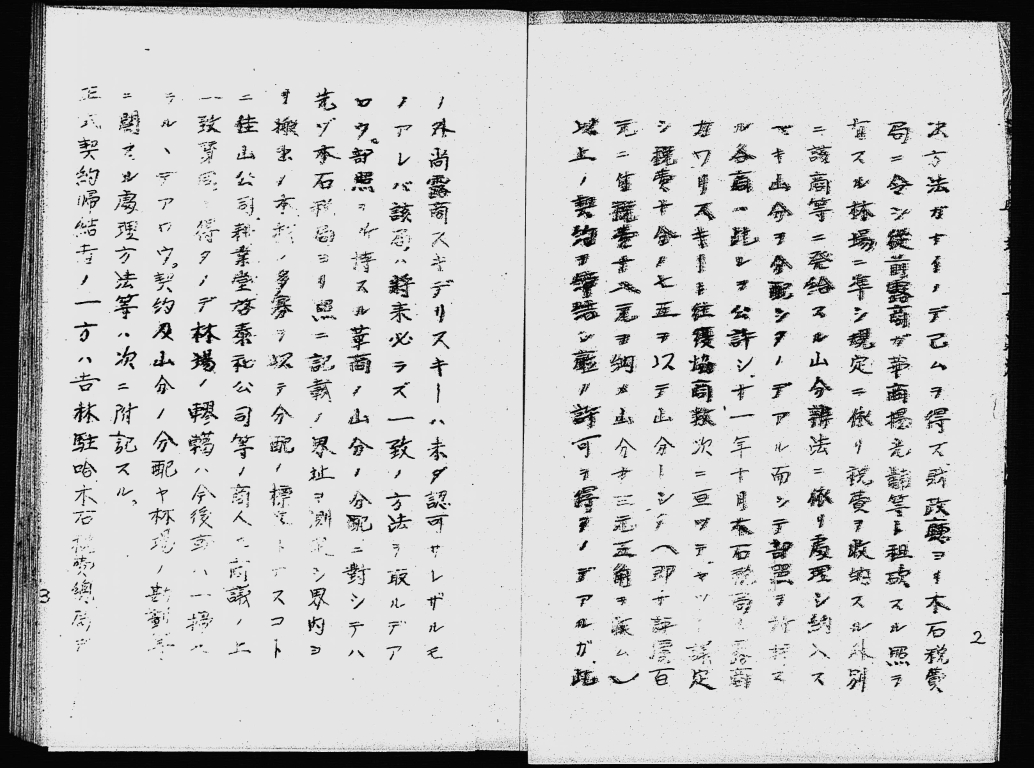 次方法ガナイノデ已ムヲ得ズ財政廳ヨリ木石税費
局ニ令シ従前露商ガ華商楊光 等ト租 スル照ヲ
有スル林場ニ準シ規定ニ依リ税費ヲ收納スル外別
ニ該商等ニ発給スル山分辨法ニ依リ處理シ納入ス
ベキ山分ヲ分配シタノデアル而シテ部照ヲ所持ス
ル各商ハ此レヲ公許シ、十一年十月木石税局ト露商
カワリスキート往復協商数次ニ亘ツテヤツト議定
シ税費ト金ノ七五ヲ以テ山分トシタ(即チ評價百
元ニ付税費十八元ヲ納メ山分廿三元五角ヲ徴ム)
以上ノ契約ヲ締結シ廳ノ許可ヲ得タノデアルガ、此
2
ノ外尚露商スキデリスキーハ未ダ認可サレザルモ
ノアレバ該局ハ將来必ラズ一致ノ方法ヲ取ルデア
ロウ。部照ヲ所持スル華商ノ山分ノ分配ニ對シテハ
先ヅ木石税局ヨリ照ニ記載ノ界址ヲ測定シ界内ヨ
リ搬出ノ木料ノ多寡ヲ以テ分配ノ標準トナスコト
ニ佳山公司 業堂啓泰和公司等ノ商人ト商議ノ上
一致 ヲ得タノデ林場ノ轇轕ハ今後或ハ一掃サ
ラルヽデアロウ。契約及山分ノ分配ヤ林場ノ勘劃等
ニ関スル處理方法等ハ次ニ附記スル。
正式契約帰結書ノ一方ハ吉林駐哈木石税費總局デ
3